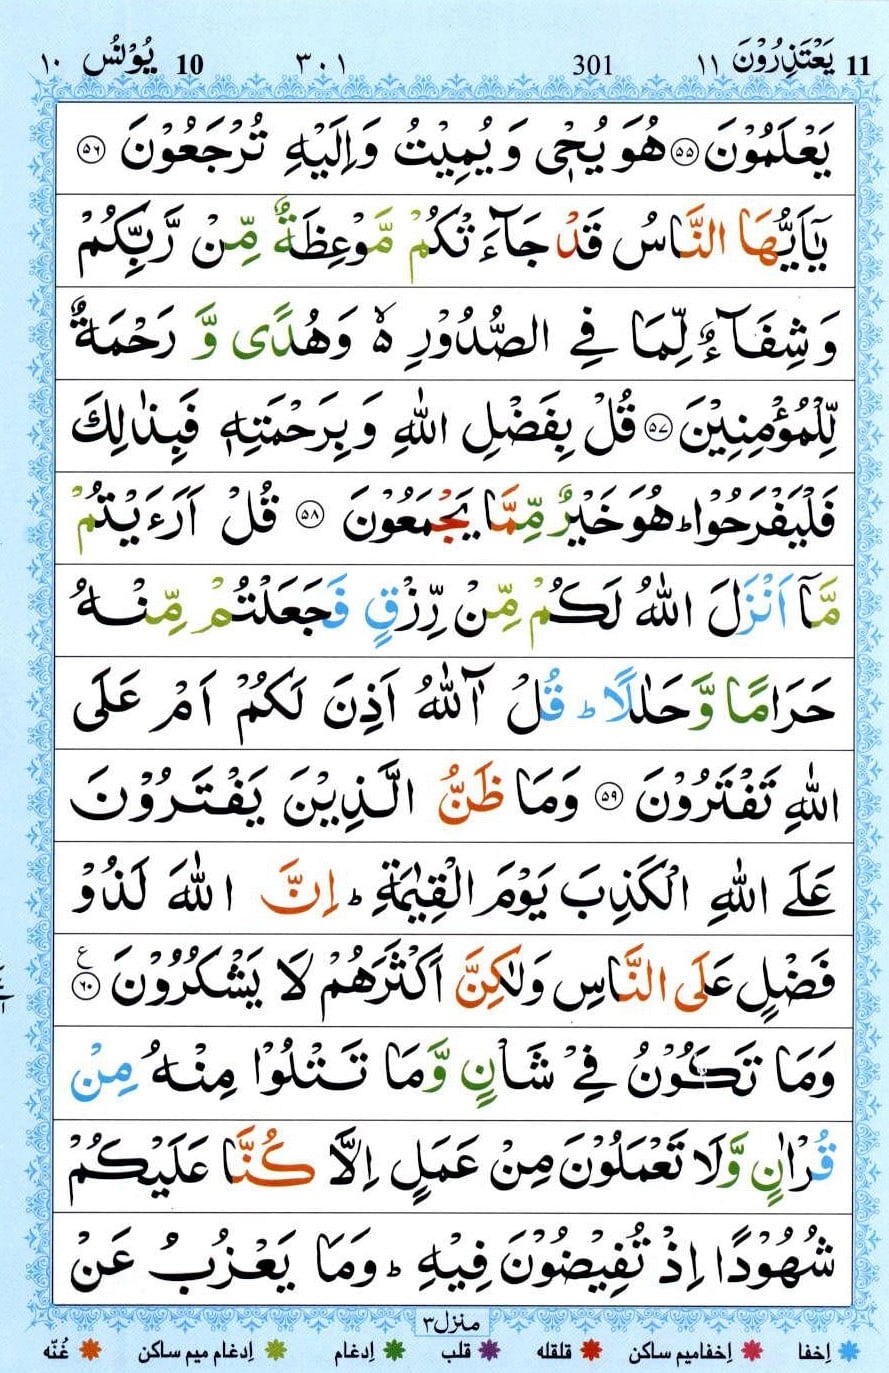 11 يَعْتَذِرُوْنَ ١١ 301 ٣٠١ 10 يُوْنُس ١٠
يَعْلَمُوْنَ ﴿۵۵﴾ هُوَ يُحْيٖ وَ يُمِيْتُ وَ اِلَيْهِ تُرْجَعُوْنَ ﴿۵۶﴾
يٰۤاَيُّهَا النَّاسُ قَدْ جَآءَتْكُمْ مَّوْعِظَةٌ مِّنْ رَّبِّكُمْ
وَ شِفَآءٌ لِّمَا فِي الصُّدُوْرِ ۙ۬ وَ هُدًى وَّ رَحْمَةٌ
لِّلْمُؤْمِنِيْنَ ﴿۵۷﴾ قُلْ بِفَضْلِ اللّٰهِ وَ بِرَحْمَتِهٖ فَبِذٰلِكَ
فَلْيَفْرَحُوْا ؕ هُوَ خَيْرٌ مِّمَّا يَجْمَعُوْنَ ﴿۵۸﴾ قُلْ اَرَءَيْتُمْ
مَّاۤ اَنْزَلَ اللّٰهُ لَكُمْ مِّنْ رِّزْقٍ فَجَعَلْتُمْ مِّنْهُ
حَرَامًا وَّ حَلٰلًا ؕ قُلْ آٰللّٰهُ اَذِنَ لَكُمْ اَمْ عَلَى
اللّٰهِ تَفْتَرُوْنَ ﴿۵۹﴾ وَ مَا ظَنُّ الَّذِيْنَ يَفْتَرُوْنَ
عَلَى اللّٰهِ الْكَذِبَ يَوْمَ الْقِيٰمَةِ ؕ اِنَّ اللّٰهَ لَذُوْ
فَضْلٍ عَلَى النَّاسِ وَلٰكِنَّ اَكْثَرَهُمْ لَا يَشْكُرُوْنَ ﴿۶۰﴾ ع
وَ مَا تَكُوْنُ فِيْ شَاْنٍ وَّ مَا تَتْلُوْا مِنْهُ مِنْ
قُرْاٰنٍ وَّ لَا تَعْمَلُوْنَ مِنْ عَمَلٍ اِلَّا كُنَّا عَلَيْكُمْ
شُهُوْدًا اِذْ تُفِيْضُوْنَ فِيْهِ ؕ وَ مَا يَعْزُبُ عَنْ
منزل ۳
اِخفا اِخفامیم ساکن قلقله قلب اِدغام اِدغام میم ساکن غُنّه